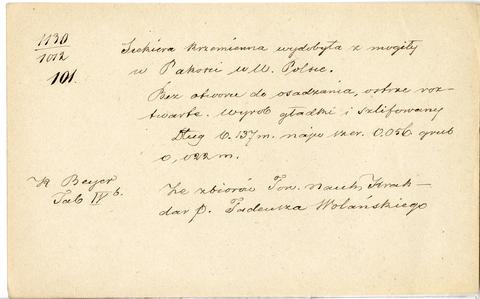 1130
1012
101.
Siekiera krzemienna wydobyta z mogiły
w Pakości w W. Polsce.
Bez otworu do osadzania, ostrze roz-
twarte. Wyrób gładki i szlifowany
Dług 0.137 m. najw szer. 0.056 grub
0,022 m.
K Beyer
Tab IV b.
Ze zbiorów Tow. nauk Krak-
dar p. Tadeusza Wolańskiego